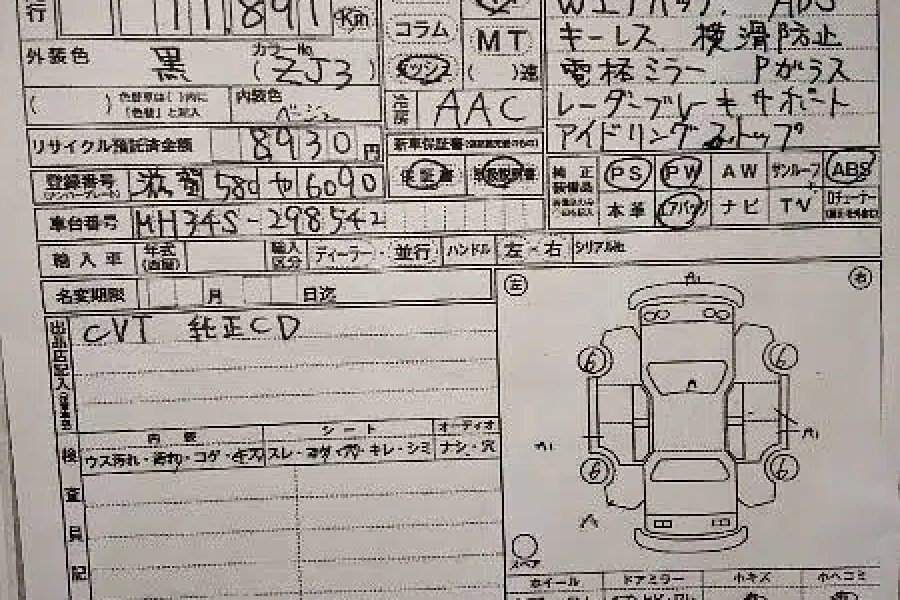 行 891 Km
コラム
Wエアバッグ. ABS
外装色 黒 カラーNo. (ZJ3)
MT ( )速
キーレス. 横滑防止
電格ミラー. Pガラス
( ) 色替車は( )内に「色替」と記入 内装色 ベージュ
冷房 AAC
レーダーブレーキサポート
リサイクル預託済金額 8930円
新車保証書
アイドリングストップ
登録番号 滋賀 580 6090
保証書 取扱説明書
純正装備品 PS PW AW サンルーフ ABS
車台番号 MH34S-298542
本革 エアバック ナビ TV
輸入車 年式 輸入区分 ディーラー・並行 ハンドル 左・右 シリアルNo.
名変期限 月 日迄
左 右
出品店記入 CVT 純正CD
A1
6 6
A
A1 A1
6 6
A
検査員記
内装 シート オーディオ
ウス汚れ・汚れ・コゲ・キズ スレ・コゲ・穴・キレ・シミ ナシ・穴
スペア
ホイール ドアミラー 小キズ 小ヘコミ